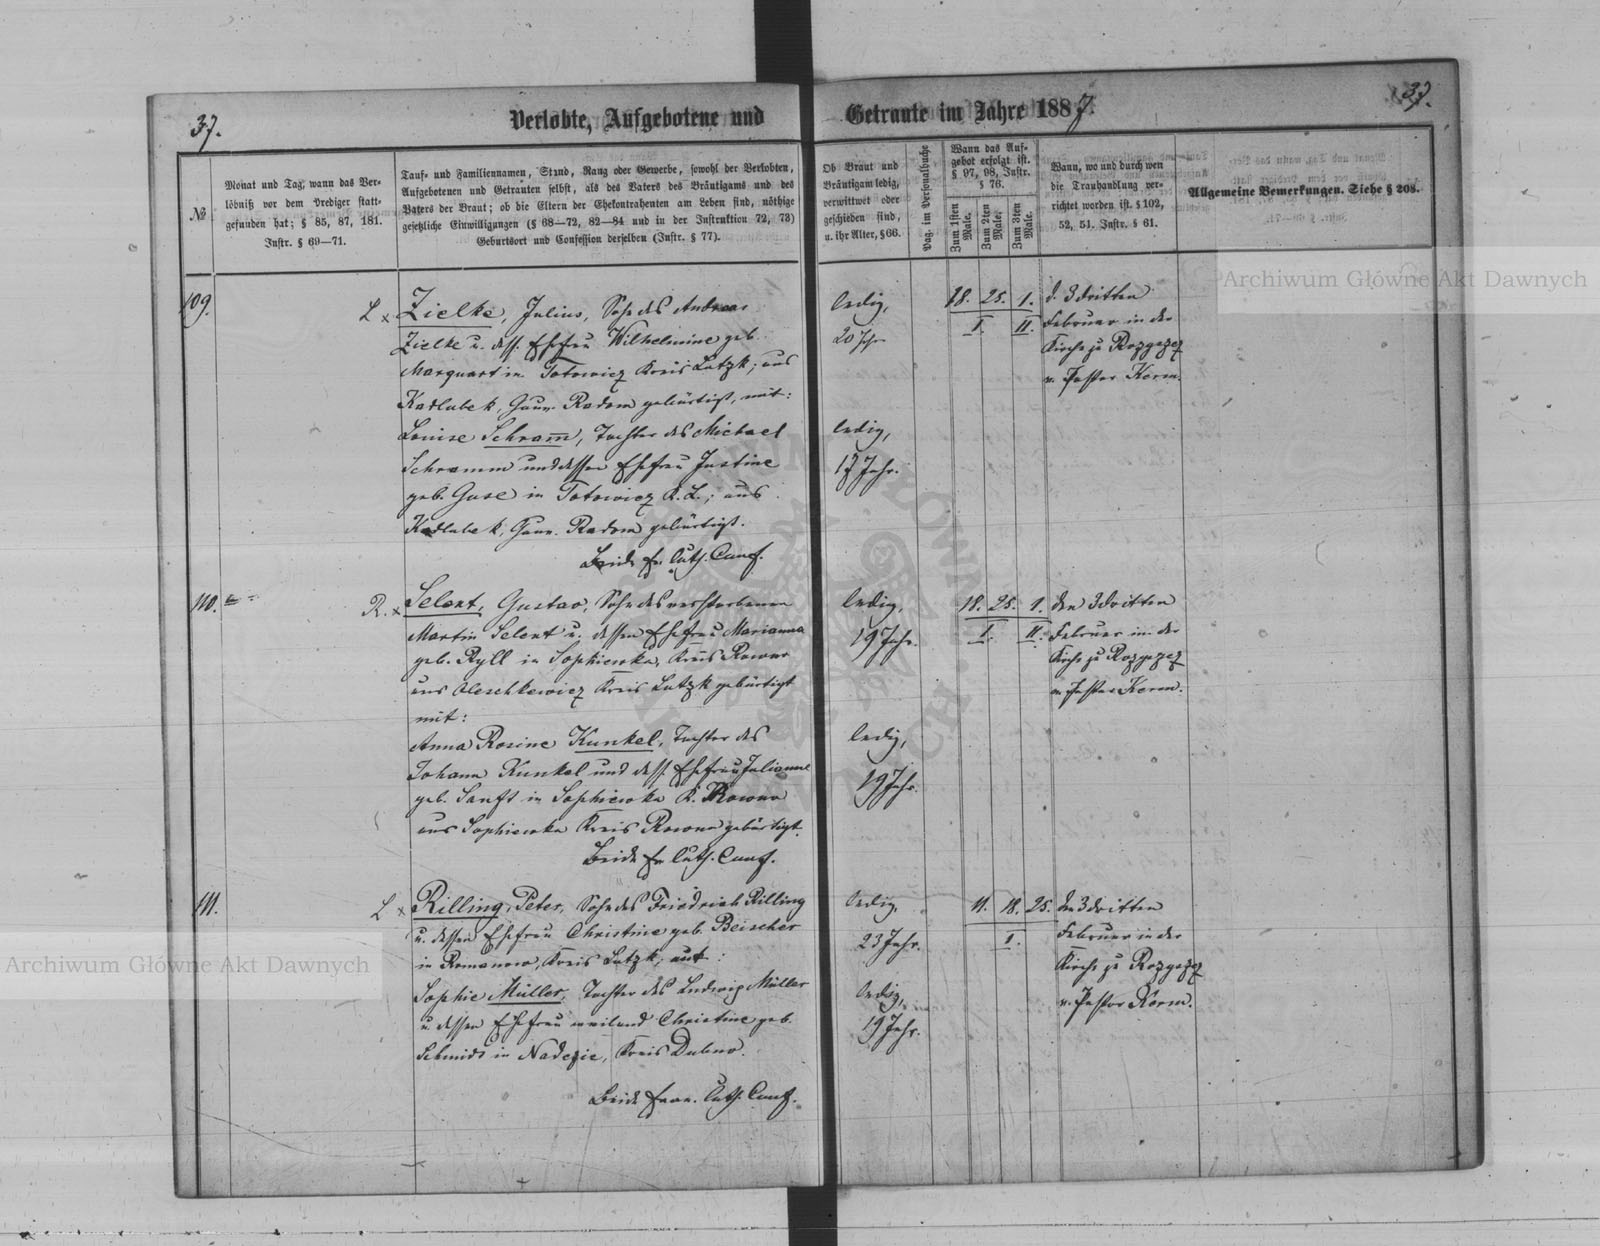 37.
Verlobte, Aufgebotene und
Getraute im Jahre 1887.
37.
№
Monat und Tag, wann das Ver-
löbniß vor dem Prediger statt-
gefunden hat; § 85, 87, 181.
Instr. § 69—71.
Tauf- und Familiennamen, Stand, Rang oder Gewerbe, sowohl der Verlobten,
Aufgebotenen und Getrauten selbst, als des Vaters des Bräutigams und des
Vaters der Braut; ob die Eltern der Ehekontrahenten am Leben sind, nöthige
gesetzliche Einwilligungen (§ 68—72, 82—84 und in der Instruktion 72, 73)
Geburtsort und Confession derselben (Instr. § 77).
Ob Braut und
Bräutigam ledig,
verwittwet oder
geschieden sind,
u. ihr Alter, § 66.
Pag. im Personalbuche
Wann das Auf-
gebot erfolgt ist.
§ 97, 98, Instr.
§ 76.
Zum 1sten Male.
Zum 2ten Male.
Zum 3ten Male.
Wann, wo und durch wen
die Trauhandlung ver-
richtet worden ist. § 102,
52, 51. Instr. § 61.
Allgemeine Bemerkungen. Siehe § 208.
109.
L x Zielke, Julius, Sohn des Andreas
Zielke u. dess. Ehefrau Wilhelmine geb.
Marquart in Totowicz Kreis Lutzk; aus
Kadlubek, Gouv. Radom gebürtigt, mit:
Louise Schram̅, Tochter des Michael
Schramm und dessen Ehefrau Justine
geb. Guse in Totowicz K. L.; aus
Kadlubek, Gouv. Radom gebürtigt.
Beide ev. luth. Conf.
ledig,
20 Jahr
ledig,
17 Jahr.
18. 25. 1.
I. II.
d. 3 dritten
Februar in der
Kirche zu Rozyszcz
v. Pastor Kerm.
110.
R. x Selent, Gustav, Sohn des verstorbenen
Martin Selent u. dessen Ehefrau Marianna
geb. Ryll in Sophiewka, Kreis Rowno
aus Oleschkewicz Kreis Lutzk gebürtigt
mit:
Anna Rosine Kunkel, Tochter des
Johann Kunkel und dess. Ehefrau Julianne
geb. Sanft in Sophiewka K. Rowno
aus Sophiewka Kreis Rowno gebürtigt.
Beide ev. luth. Conf.
ledig,
19 Jahr.
ledig,
19 Jahr.
18. 25. 1.
I. II.
den 3 dritten
Februar in der
Kirche zu Rozyszcz
v. Pastor Kerm.
111.
L x Rilling, Peter, Sohn des Friedrich Rilling
u. dessen Ehefrau Christine geb. Beischer
in Romanow, Kreis Lutzk; mit:
Sophie Müller, Tochter des Ludwig Müller
u. dessen Ehefrau weiland Christine geb.
Schmidt in Nadezie, Kreis Dubno.
Beide evan. luth. Conf.
ledig,
23 Jahr.
ledig,
19 Jahr.
11. 18. 25.
I.
den 3 dritten
Februar in der
Kirche zu Rozyszcz
v. Pastor Kerm.
Archiwum Główne Akt Dawnych
Archiwum Główne Akt Dawnych